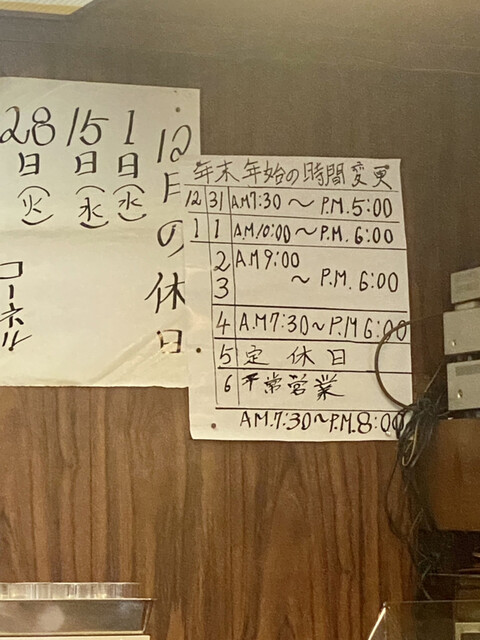 12月の休日
1日(水)
15日(水)
28日(火)
コーネル
年末年始の時間変更
12 31 A.M7:30 〜 P.M.5:00
1 1 A.M.10:00 〜 P.M. 6:00
2 A.M9:00
3 〜 P.M. 6:00
4 A.M7:30〜P.M 6:00
5 定休日
6 平常営業
A.M.7:30〜P.M.8:00